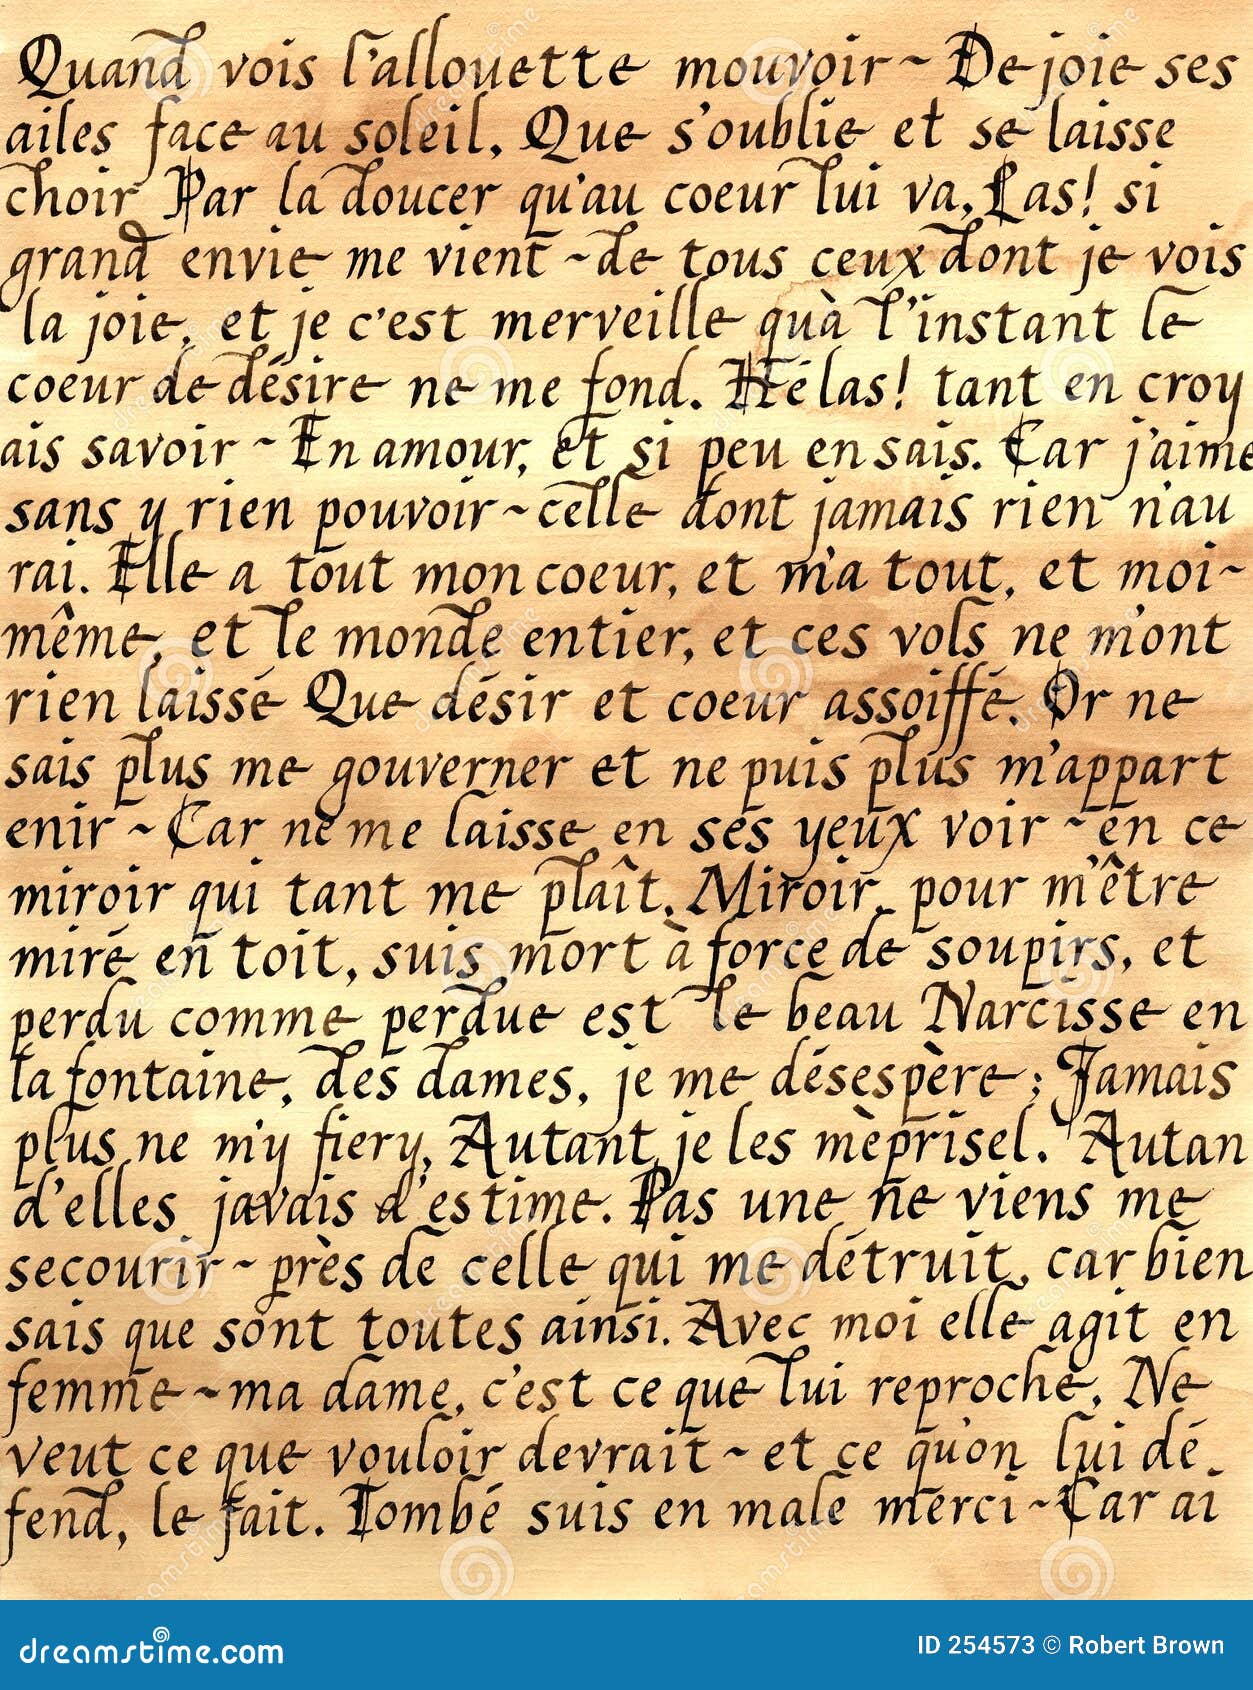 Quand vois l'allouette mouvoir ~ De joie ses
ailes face au soleil, Que s'oublie et se laisse
choir Par la doucer qu'au coeur lui va, Las! si
grand envie me vient ~ de tous ceux dont je vois
la joie, et je c'est merveille quà l'instant le
coeur de désire ne me fond. Hélas! tant en croy
ais savoir ~ En amour, et si peu en sais. Car j'aime
sans y rien pouvoir ~ celle dont jamais rien n'au
rai. Elle a tout mon coeur, et m'a tout, et moi-
même, et le monde entier, et ces vols ne m'ont
rien laissé Que désir et coeur assoiffé. Or ne
sais plus me gouverner et ne puis plus m'appart
enir ~ Car ne me laisse en ses yeux voir ~ en ce
miroir qui tant me plaît. Miroir, pour m'être
miré en toit, suis mort à force de soupirs, et
perdu comme perdue est le beau Narcisse en
la fontaine, des dames, je me désespère; Jamais
plus ne m'y fiery, Autant je les mèprisel. Autan
d'elles javais d'estime. Pas une ne viens me
secourir ~ près de celle qui me détruit, car bien
sais que sont toutes ainsi. Avec moi elle agit en
femme ~ ma dame, c'est ce que lui reproche, Ne
veut ce que vouloir devrait ~ et ce qu'on lui dé
fend, le fait. Tombé suis en male merci ~ Car ai
dreamstime.com
ID 254573 © Robert Brown